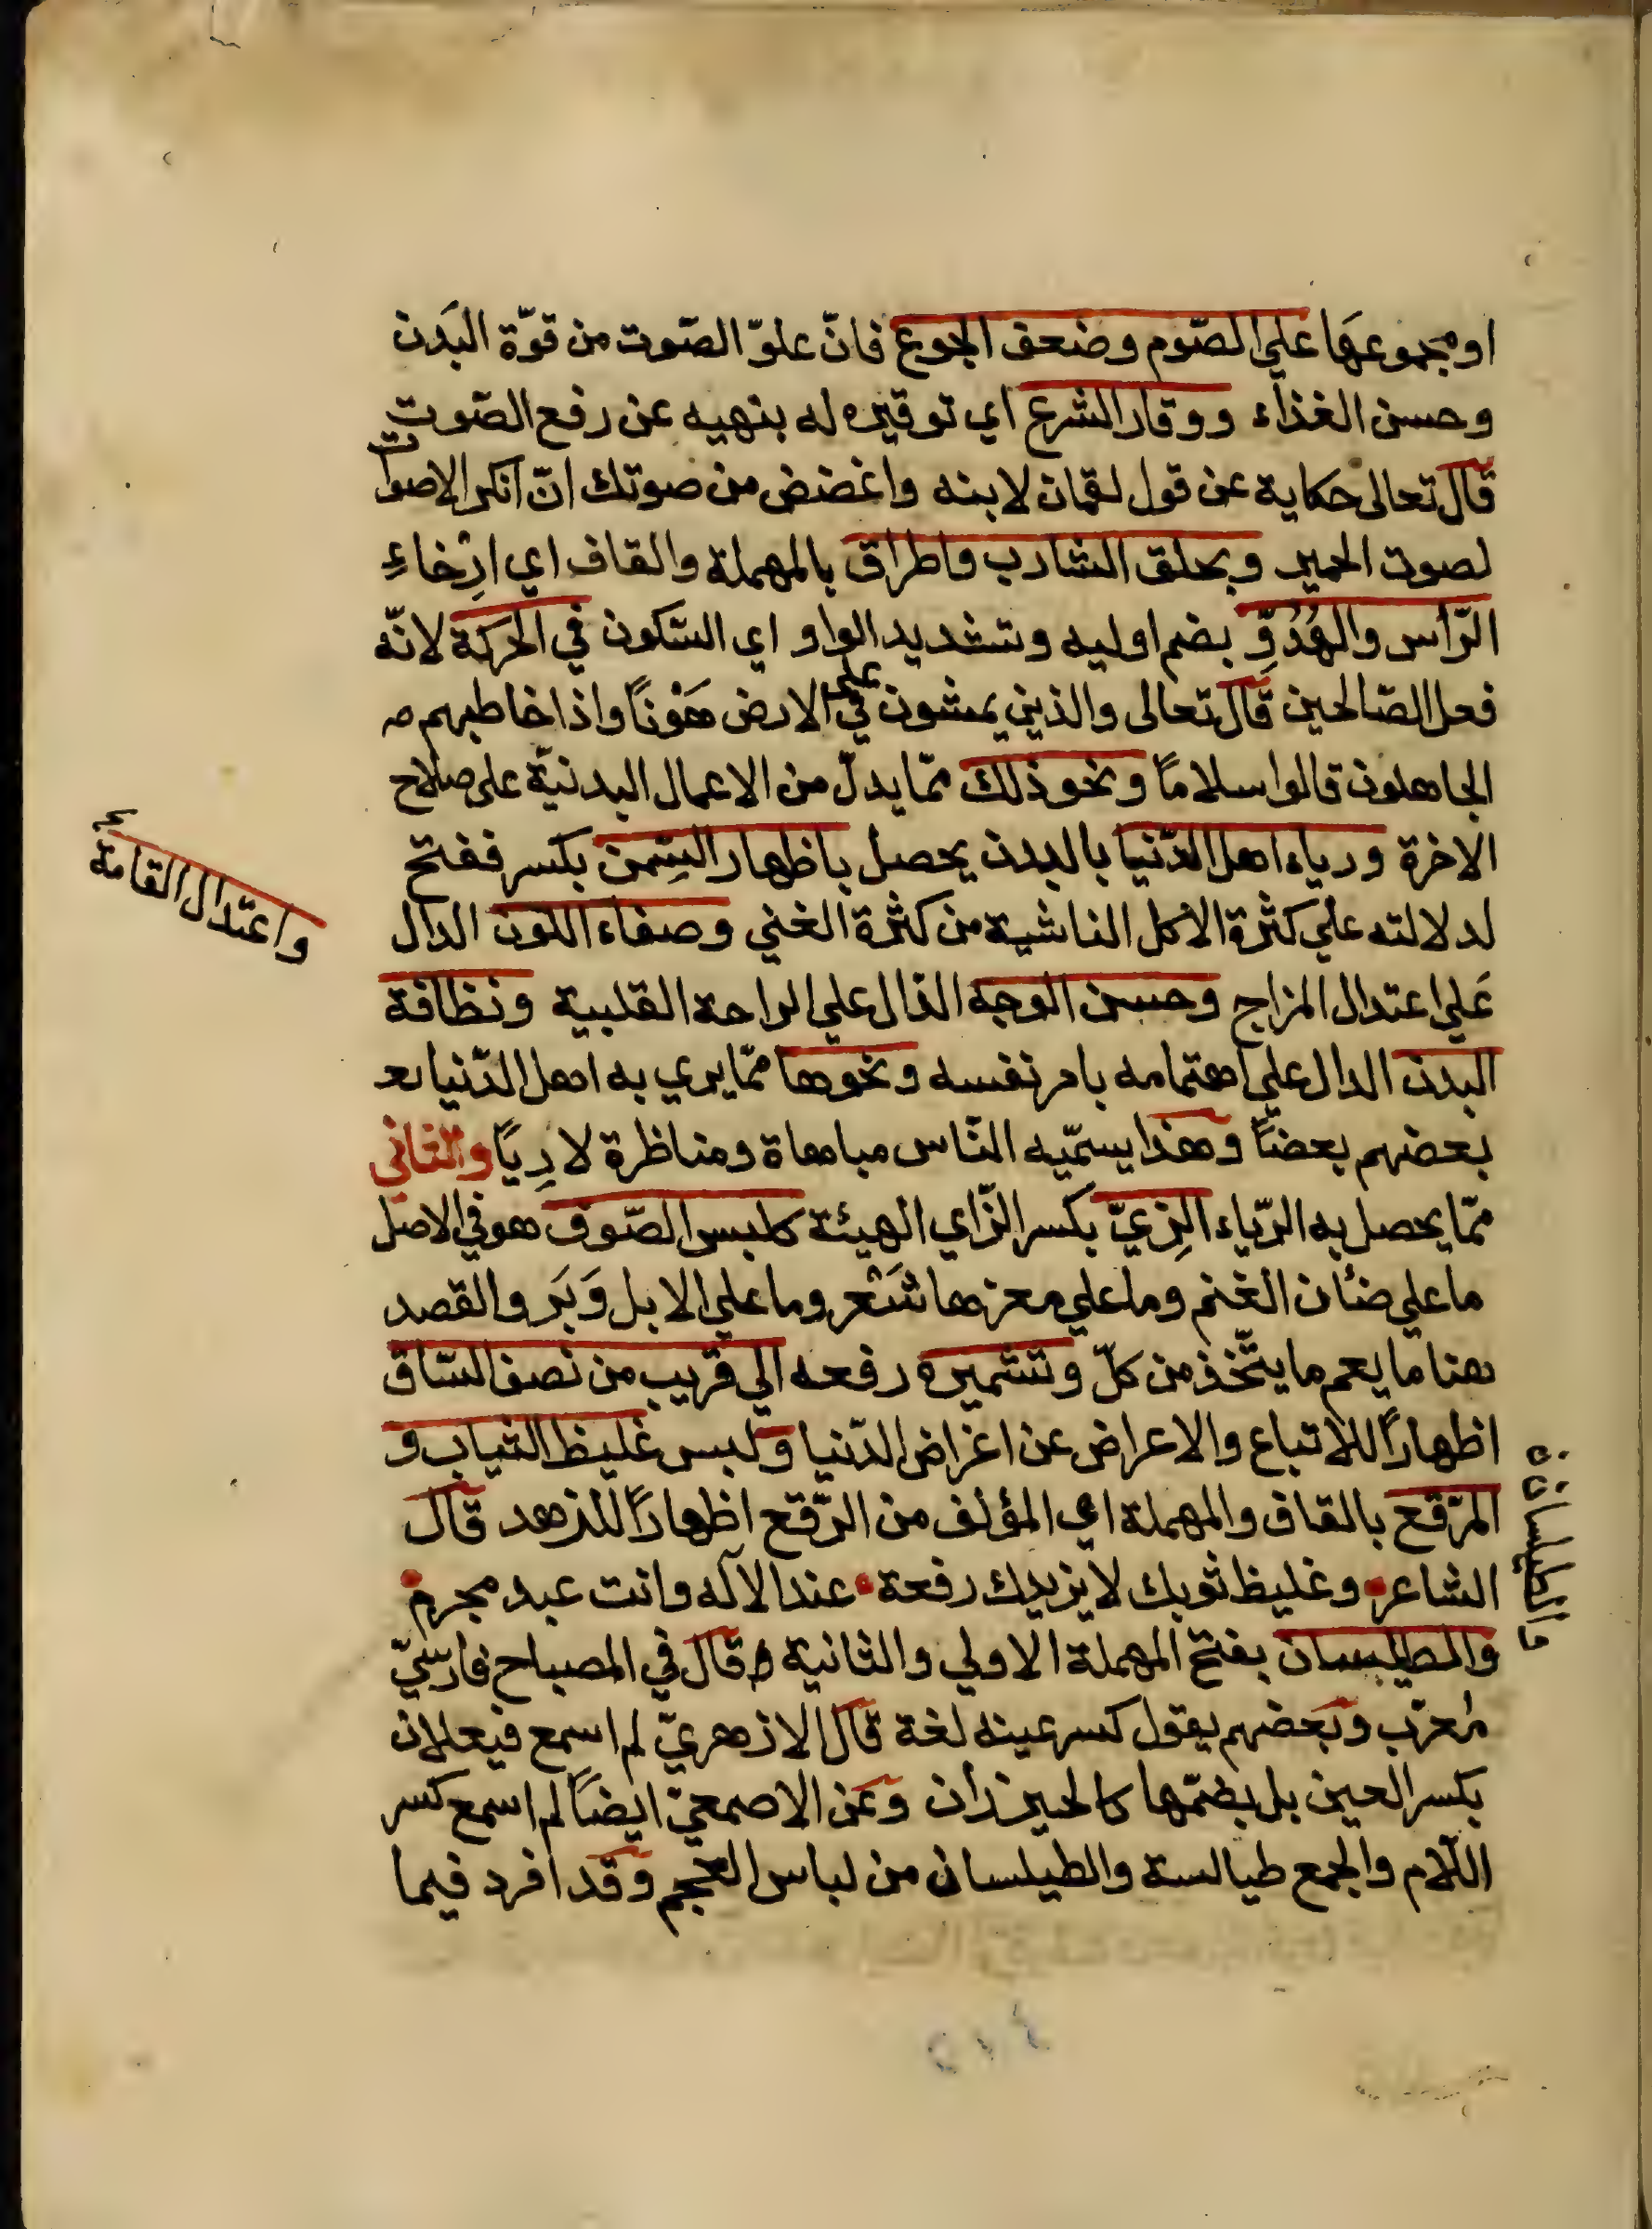 او مجموعهَا علي الصّوم وضعف الجوع فانّ علوّ الصّوت من قوّة البَدن
وحسن الغذاء ووقار الشرع اي توقيره له بنهيه عن رفع الصّوت
قال تعالى حكاية عن قول لقمان لابنه واغضض من صوتك انّ انكر الاصوات
لصوت الحمير وبحلق الشارب واطراق بالمهملة والقاف اي ارْخاءِ
الرّاس والهُدُوِّ بضم اوليه وتشديد الواو اي السّكون في الحركة لانّه
فعل الصّالحين قال تعالى والذين يمشون في على الارض هَوْنًا واذا خاطبهم
الجاهلون قالوا سلامًا ونحو ذلك ممّا يدلّ من الاعمال البدنيّة على صلاح
الاخرة ورياء اهل الدّنيا بالبدن يحصل باظهار السِّمن بكسر ففتح
لدلالته علي كثرة الاكل الناشية من كثرة الغني وصفاء اللون الدال
عَلي اعتدال المزاج وحسن الوجه الدّال علي الراحة القلبية ونظافة
البدن الدال علي اهتمامه بامر نفسه ونحوها ممّا يري به اهل الدّنيا
بعضهم بعضًا وهذا يسمّيه النّاس مباهاة ومناظرة لا رِيًا والثاني
ممّا يحصل به الرّياء الزِيّ بكسر الزّاي الهيئة كلبس الصّوف هو في الاصل
ما علي ضئان الغنم وما علي معزها شَعْر وما علي الابل وَبَر والقصد
هنا ما يعم ما يتّخذ من كلّ وتشميره رفعه الي قريب من نصف السّاق
اظهارًا للاتباع والاعراض عن اغراض الدّنيا ولبس غليظ الثياب و
المرّقع بالقاف والمهملة اي المؤلف من الرّقع اظهارًا للزهد قال
الشاعر وغليظ ثوبك لا يزيدك رفعة عند الآله وانت عبد مجرم
والطيلسان بفتح المهملة الاولي والثانية قال في المصباح فارسّيّ
مُعرّب وبعضهم يقول كسر عينه لغة قال الازهريّ لم اسمع فيعلان
بكسر العين بل بضمّها كالحيزران وعن الاصمعيّ ايضًا لم اسمع كسر
اللّام والجمع طيالسة والطيلسان من لباس العجم وقد افرد فيما
واعتدال القامة